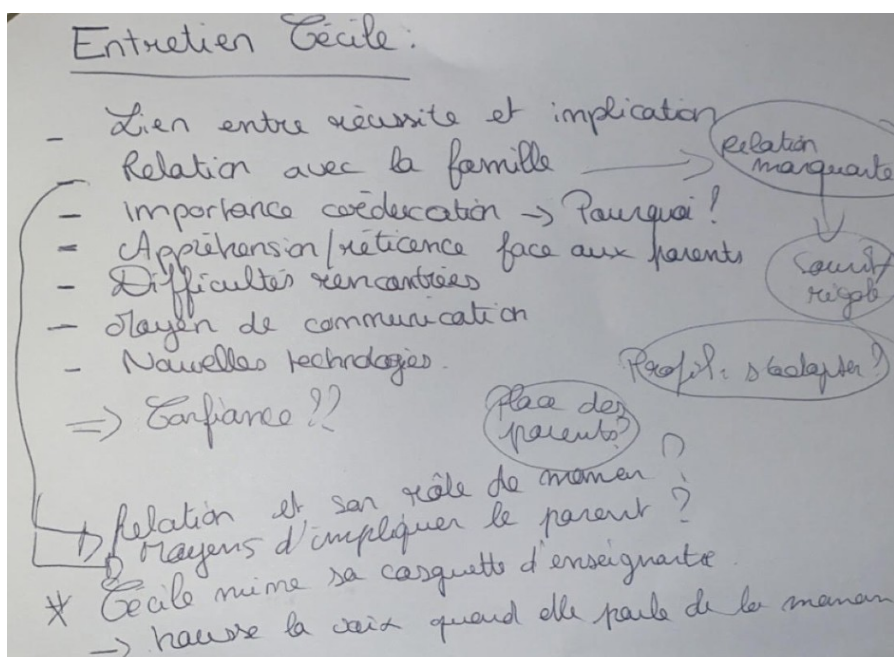 Entretien Cécile :
- Lien entre réussite et implication
- Relation avec la famille →
Relation
marquante
- Importance coéducation → Pourquoi !
- Appréhension/réticence face aux parents
- Difficultés rencontrées
- Moyen de communication
- Nouvelles technologies.
Sourit/
rigole
Profil : s'adapter ?
⇒ Confiance ??
Place des
parents ?
Relation et son rôle de maman ?
Moyens d'impliquer le parent ?
* Cécile mime sa casquette d'enseignante
→ hausse la voix quand elle parle de la maman